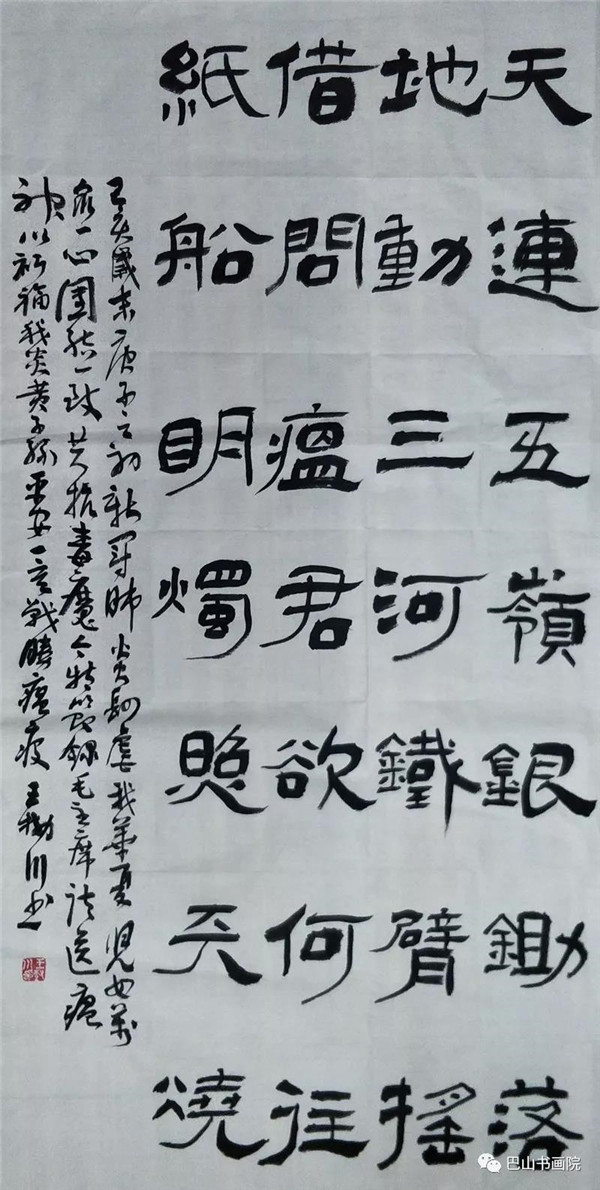 天連五嶺銀鋤落
地動三河鐵臂搖
借問瘟君欲何往
紙船明燭照天燒
己亥歲末庚子之初新冠肺炎肆虐我華夏兒女萬
众一心團結一致共抗毒魔今特節錄毛主席詩送瘟
神以祈福我炎黃子孫平安一定戰勝瘟疫 王樹川书
巴山书画院